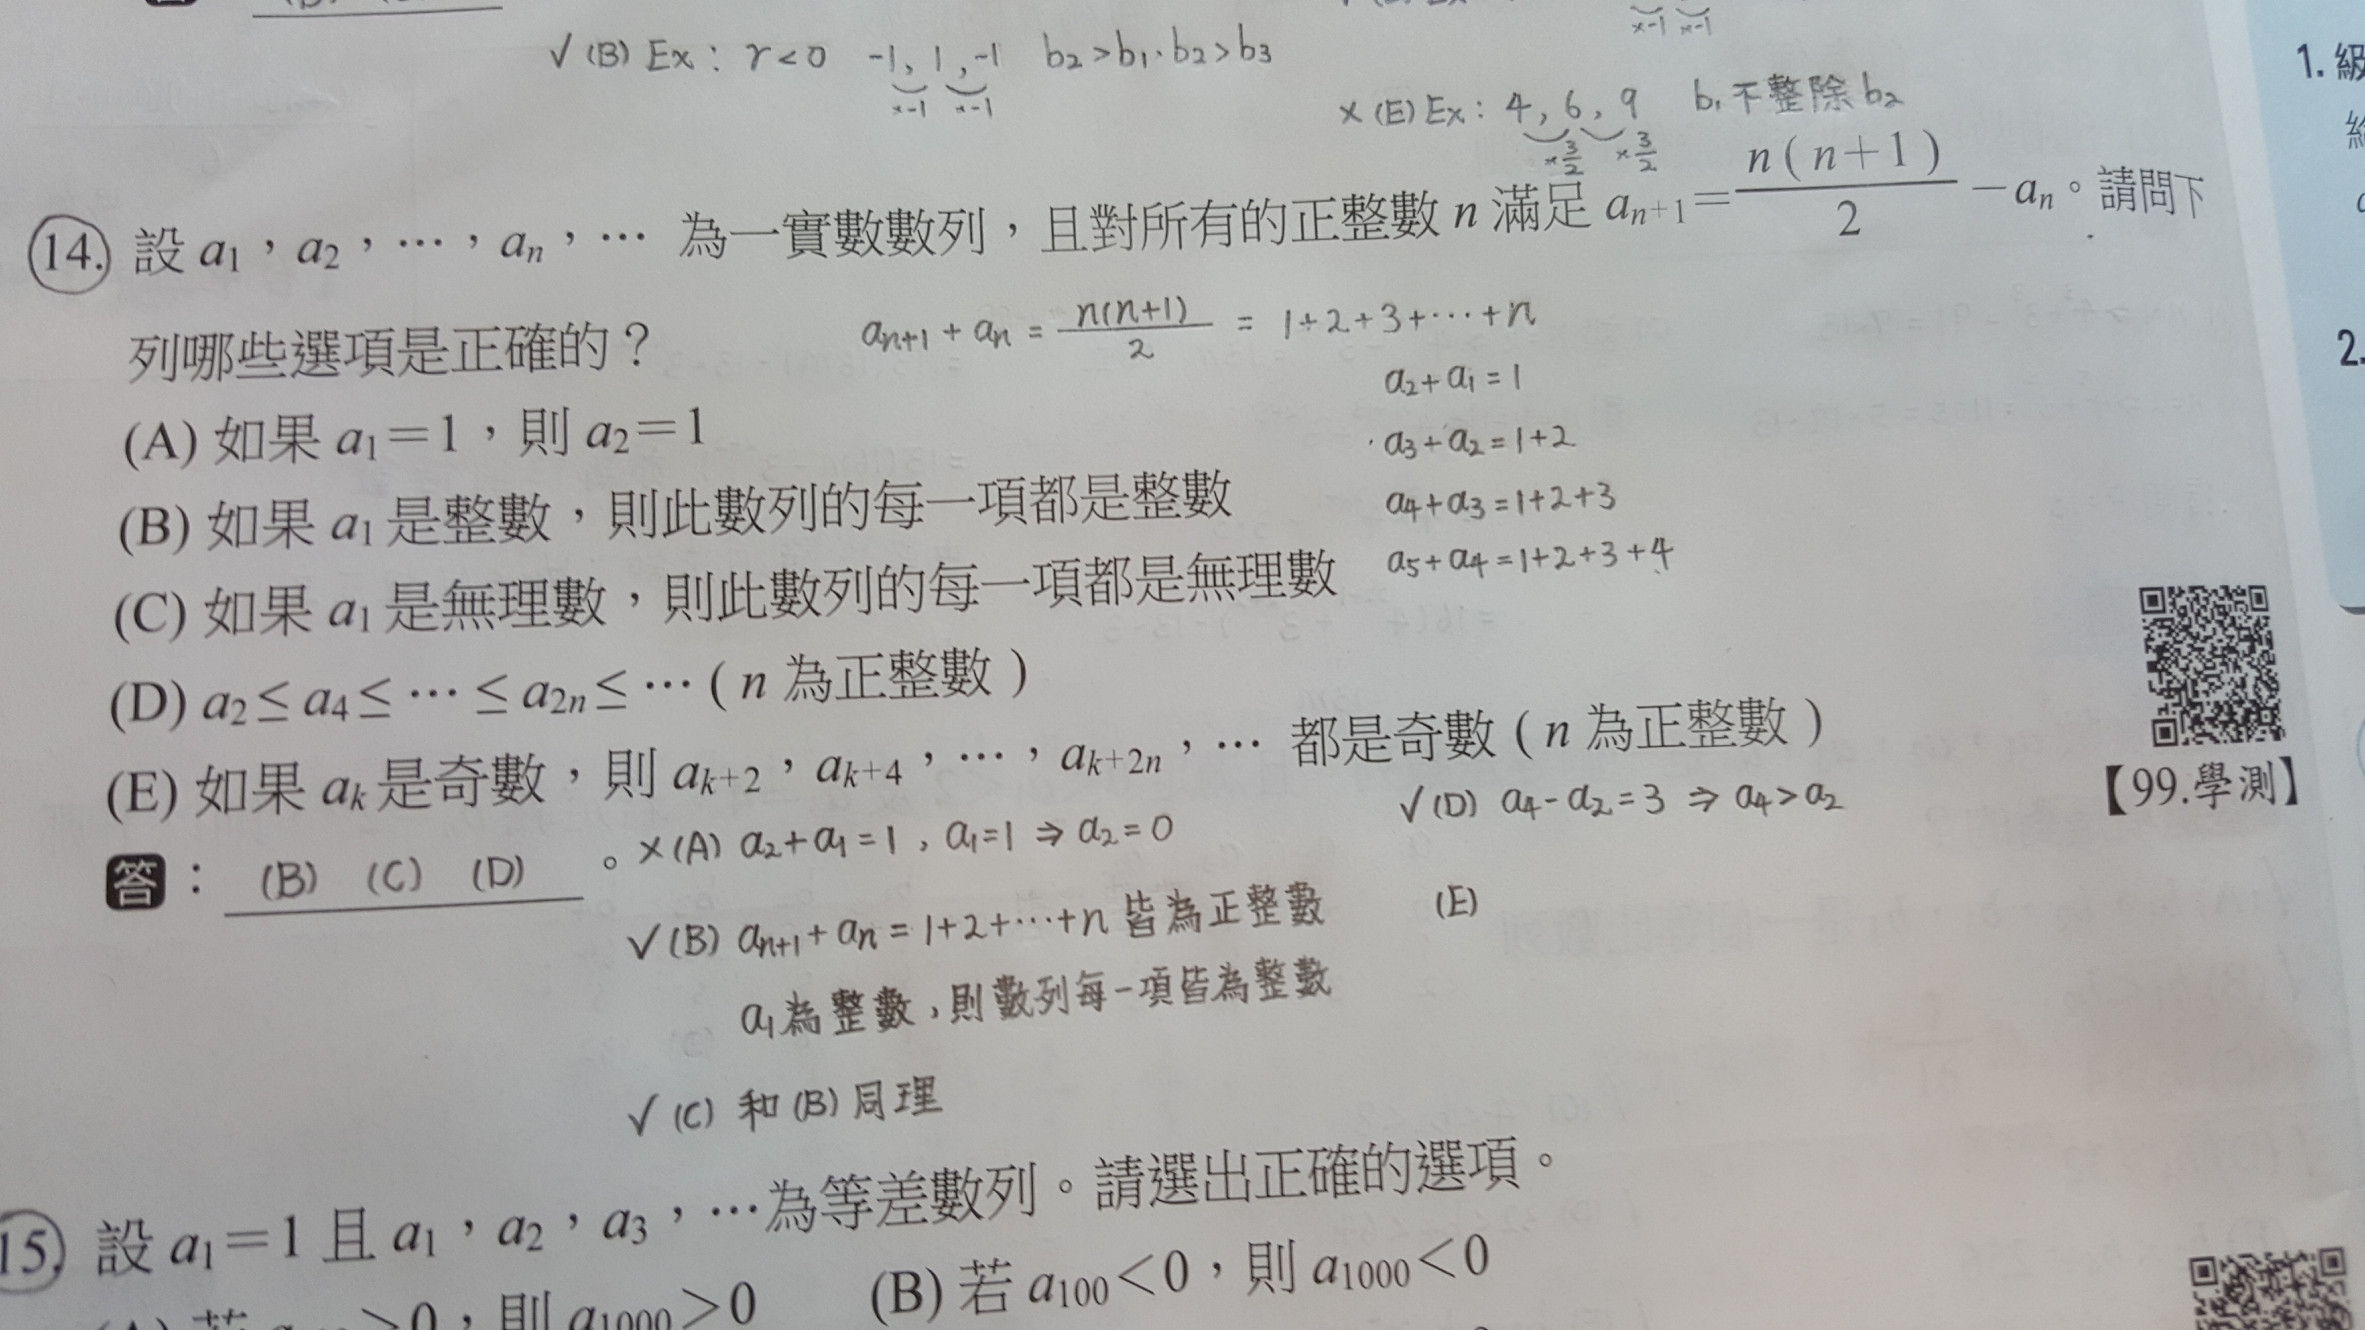 √ (B) Ex : r<0 -1, 1, -1 b₂>b₁, b₂>b₃
×-1 ×-1
×-1 ×-1
× (E) Ex : 4, 6, 9 b₁不整除b₂
×3/2 ×3/2
14. 設 a₁,a₂,…,aₙ,… 為一實數數列,且對所有的正整數 n 滿足 aₙ₊₁=n(n+1)/2-aₙ。請問下
列哪些選項是正確的?
aₙ₊₁+aₙ = n(n+1)/2 = 1+2+3+⋯+n
a₂+a₁=1
a₃+a₂=1+2
a₄+a₃=1+2+3
a₅+a₄=1+2+3+4
(A) 如果 a₁=1,則 a₂=1
(B) 如果 a₁ 是整數,則此數列的每一項都是整數
(C) 如果 a₁ 是無理數,則此數列的每一項都是無理數
(D) a₂≤a₄≤…≤a₂ₙ≤…(n 為正整數)
(E) 如果 aₖ 是奇數,則 aₖ₊₂,aₖ₊₄,…,aₖ₊₂ₙ,… 都是奇數(n 為正整數)
【99.學測】
答: (B) (C) (D) 。
×(A) a₂+a₁=1, a₁=1 ⇒ a₂=0
√(B) aₙ₊₁+aₙ=1+2+⋯+n 皆為正整數
a₁為整數,則數列每一項皆為整數
√(C) 和(B)同理
√(D) a₄-a₂=3 ⇒ a₄>a₂
(E)
15. 設 a₁=1 且 a₁,a₂,a₃,…為等差數列。請選出正確的選項。
>0,則 a₁₀₀₀>0 (B) 若 a₁₀₀<0,則 a₁₀₀₀<0
1. 級
2.